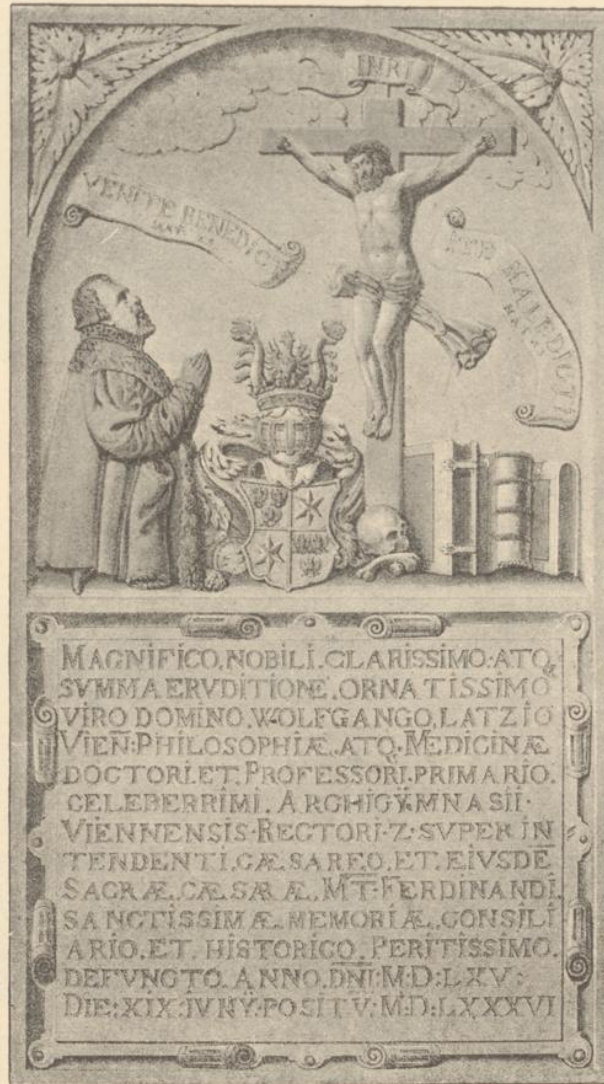 INRI
VENITE BENEDICTI
MAT
ITE MALEDICTI
MAT
MAGNIFICO.NOBILI.CLARISSIMO.ATQ
SVMMA ERVDITIONE.ORNATISSIMO
VIRO DOMINO.WOLFGANGO.LATZIO
VIEN̄:PHILOSOPHIÆ.ATQ.MEDICINÆ
DOCTORI.ET.PROFESSORI.PRIMARIO.
CELEBERRIMI.ARCHIGŸMNASII.
VIENNENSIS.RECTORI.Z.SVPERIN
TENDENTI.CÆSAREO.ET.EIVSDĒ
SACRÆ.CÆSAR Æ.M̄T̄.FERDINANDI.
SANCTISSIMÆ.MEMORIÆ.CONSILI
ARIO.ET.HISTORICO.PERITISSIMO.
DEFVNGTO.ANNO.DN̄I:M:D:LXV:
DIE:XIX:IVNŸ.POSITV:M:D:LXXXVI